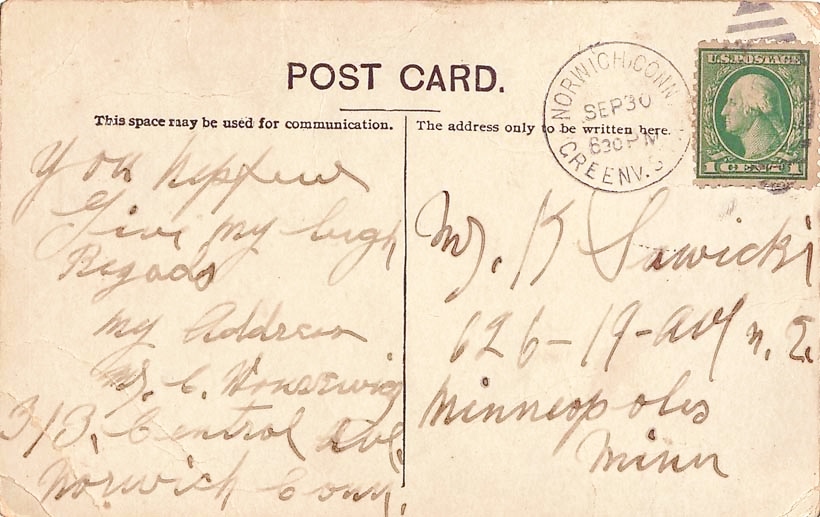 POST CARD.
This space may be used for communication.
The address only to be written here.
NORWICH, CONN.
SEP 30
630 PM
GREENV. S
U.S. POSTAGE
1 CENT 1
you
Give my high
Regads
my Address
313, Central Ave.
Norwich Conn.
Mr. K Sawicki
626-19-avE n. E.
Minneopoles
Minn